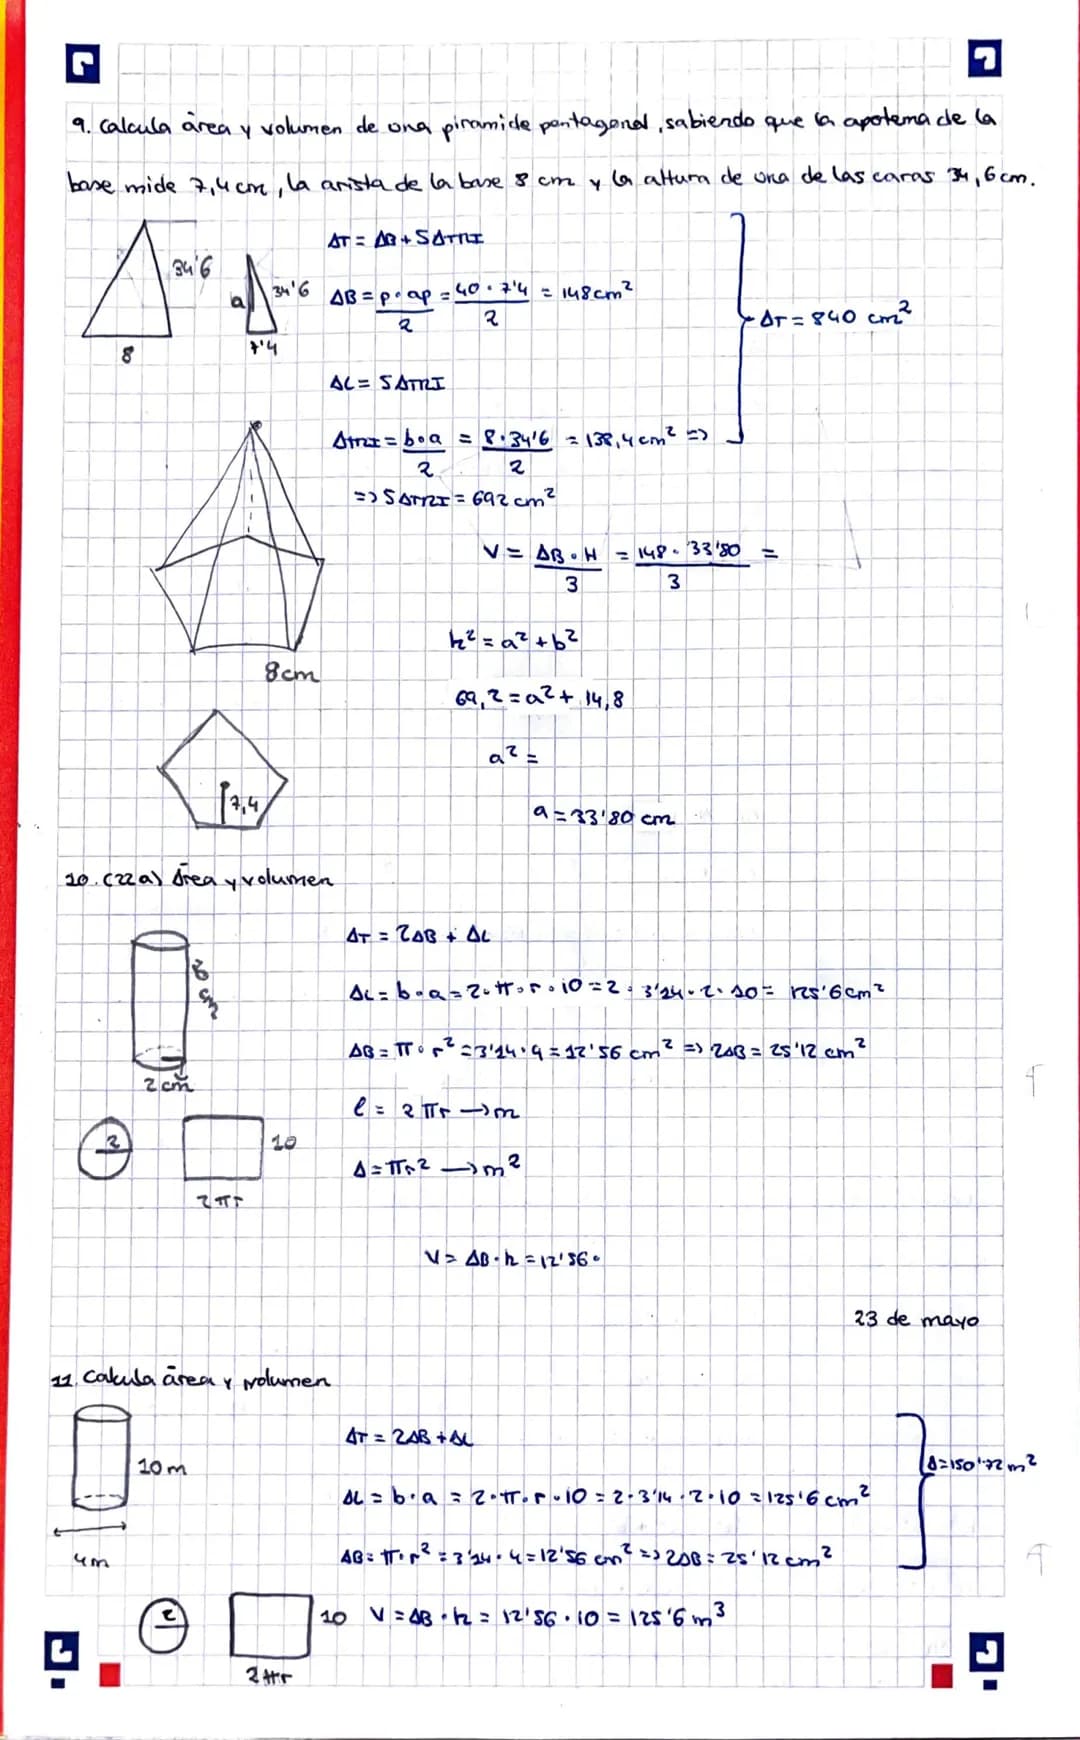 9. Calcula área y volumen de una piramide pentagonal, sabiendo que la apotema de la
base mide 7,4 cm, la arista de la base 8 cm y la altura de una de las caras 34,6 cm.
34'6
8
a
34'6
7'4
AT = AB + 5ATRI
AB = p·ap/2 = 40·7'4/2 = 148 cm²
AT = 840 cm²
AL = 5ATRI
ATRI = b·a/2 = 8·34'6/2 = 138,4 cm² =>
=> 5ATRI = 692 cm²
V = AB·H/3 = 148·33'80/3 =
8 cm
h² = a² + b²
69,2 = a² + 14,8
a² =
a = 33'80 cm
7,4
10. (22a) Área y volumen
AT = 2AB + AL
cm
AL = b·a = 2·π·r·10 = 2·3'14·2·10 = 125'6 cm²
AB = π·r² = 3'14·4 = 12'56 cm² => 2AB = 25'12 cm²
2 cm
l = 2πr → m
2
10
A = πr² → m²
2πr
V = AB·h = 12'56·
23 de mayo
11. Calcula área y volumen
AT = 2AB + AL
10 m
A = 150'72 m²
AL = b·a = 2·π·r·10 = 2·3'14·2·10 = 125'6 cm²
4m
AB = π·r² = 3'14·4 = 12'56 cm² => 2AB = 25'12 cm²
2
10
V = AB·h = 12'56·10 = 125'6 m³
2πr